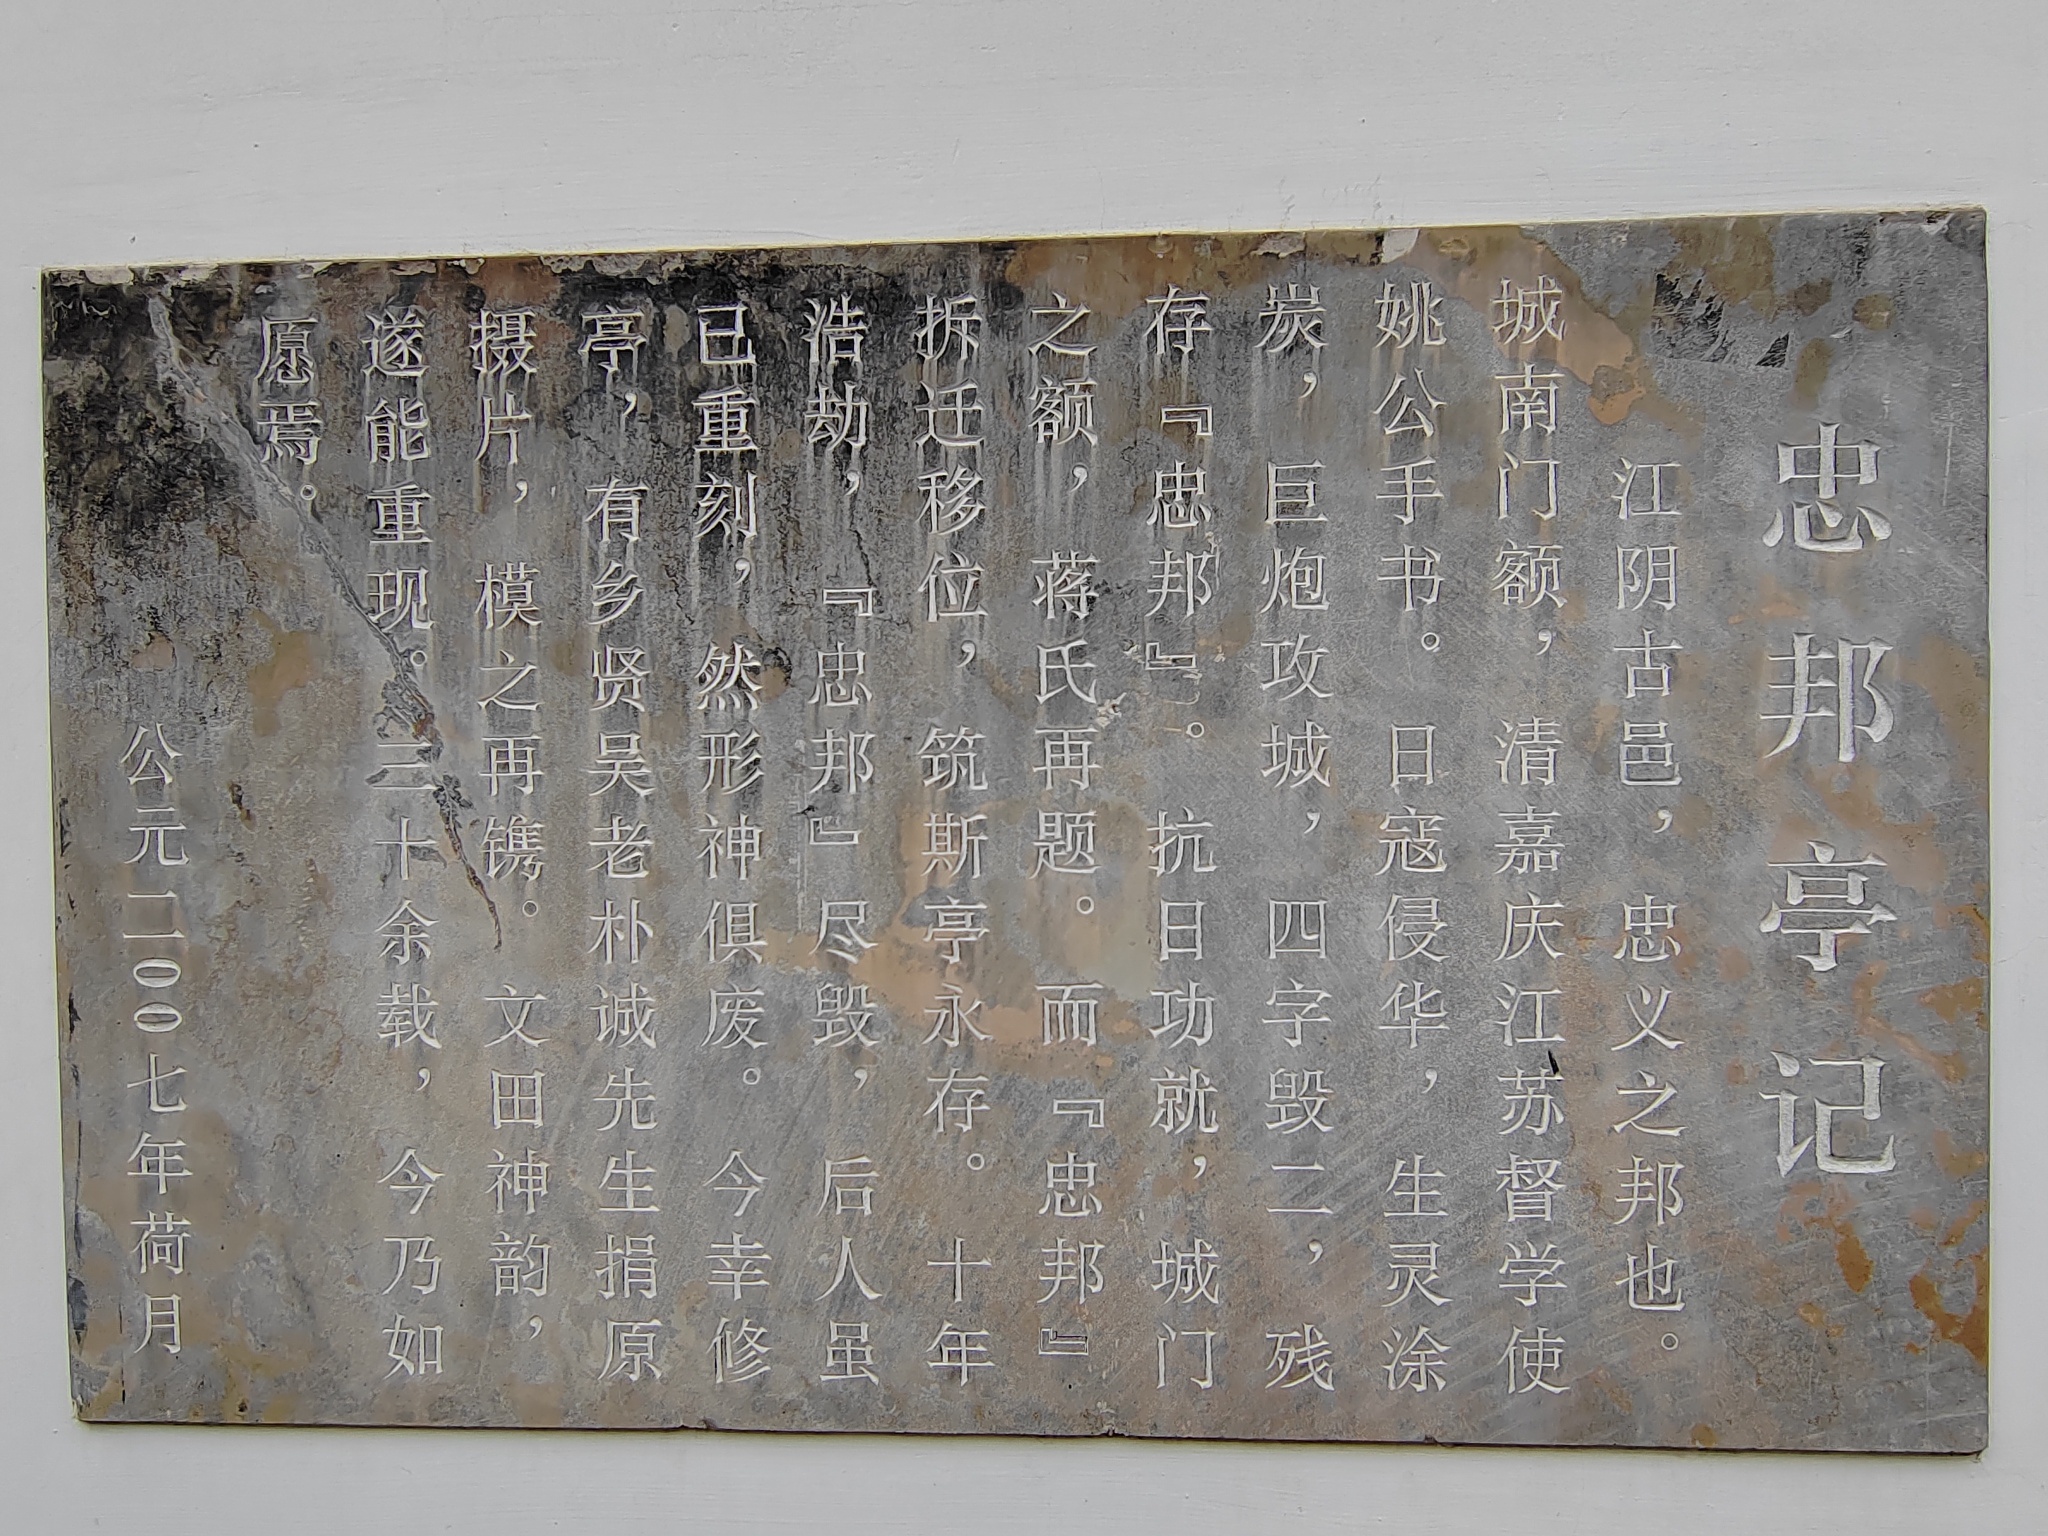 忠邦亭记
江阴古邑，忠义之邦也。
城南门额，清嘉庆江苏督学使
姚公手书。日寇侵华，生灵涂
炭，巨炮攻城，四字毁二，残
存『忠邦』。抗日功就，城门
之额，蒋氏再题。而『忠邦』
拆迁移位，筑斯亭永存。十年
浩劫，『忠邦』尽毁，后人虽
已重刻，然形神俱废。今幸修
亭，有乡贤吴老朴诚先生捐原
摄片，模之再镌。文田神韵，
遂能重现。三十余载，今乃如
愿焉。
公元二００七年荷月